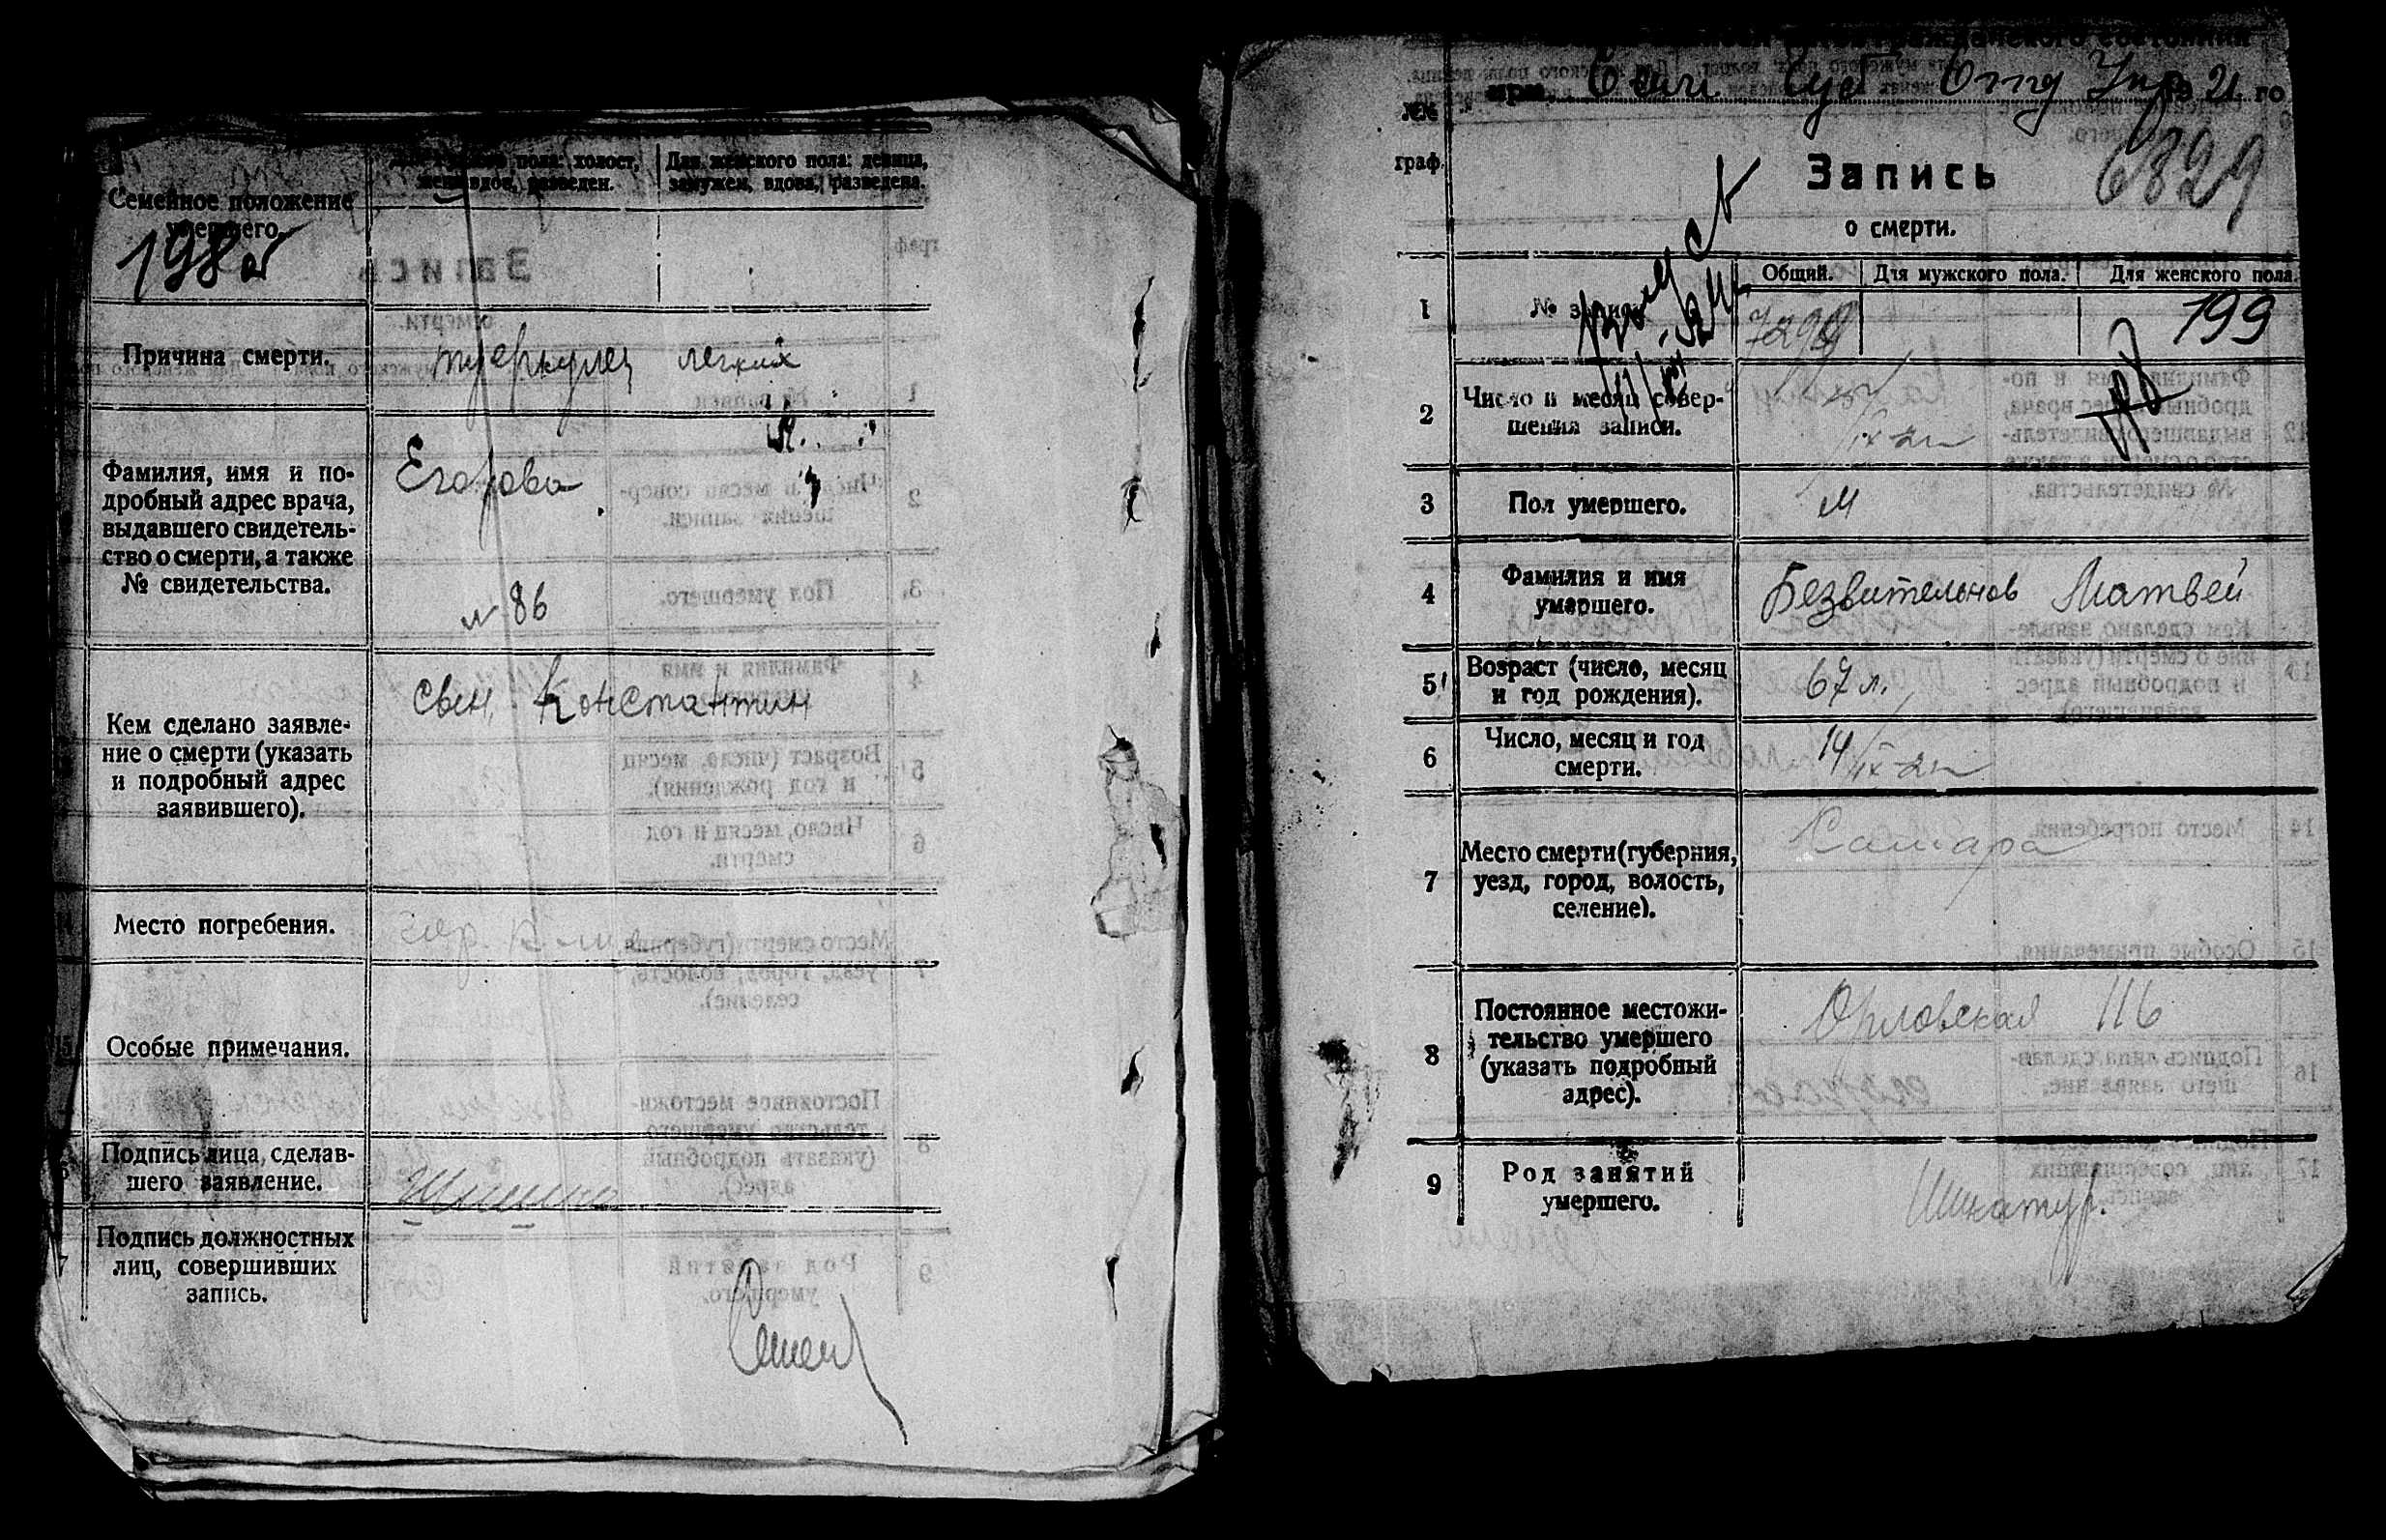 Семейное положение
умершего.
пола: холост,
вдов, разведен.
Для женского пола: девица,
замужем, вдова, разведена.
198
Причина смерти.
легких
Фамилия, имя и по-
дробный адрес врача,
выдавшего свидетель-
ство о смерти, а также
№ свидетельства.
Егорова
№ 86
Кем сделано заявле-
ние о смерти (указать
и подробный адрес
заявившего).
Свен. Константин
Место погребения.
гор.
Особые примечания.
Подпись лица, сделав-
шего заявление.
Подпись должностных
лиц, совершивших
запись.
гражданского состояния
при Отд Упр 21 го
№№
граф.
Запись
о смерти.
6829
1
№ записи
Общий.
Для мужского пола.
Для женского пола.
199
2
Число и месяц совер-
шения записи.
3
Пол умершего.
м
4
Фамилия и имя
умершего.
Безвительнов Матвей
5
Возраст (число, месяц
и год рождения).
67 л.
6
Число, месяц и год
смерти.
14/IX-21
7
Место смерти (губерния,
уезд, город, волость,
селение).
Самара
8
Постоянное местожи-
тельство умершего
(указать подробный
адрес).
Орловская 116
9
Род занятий
умершего.
Штукатур.